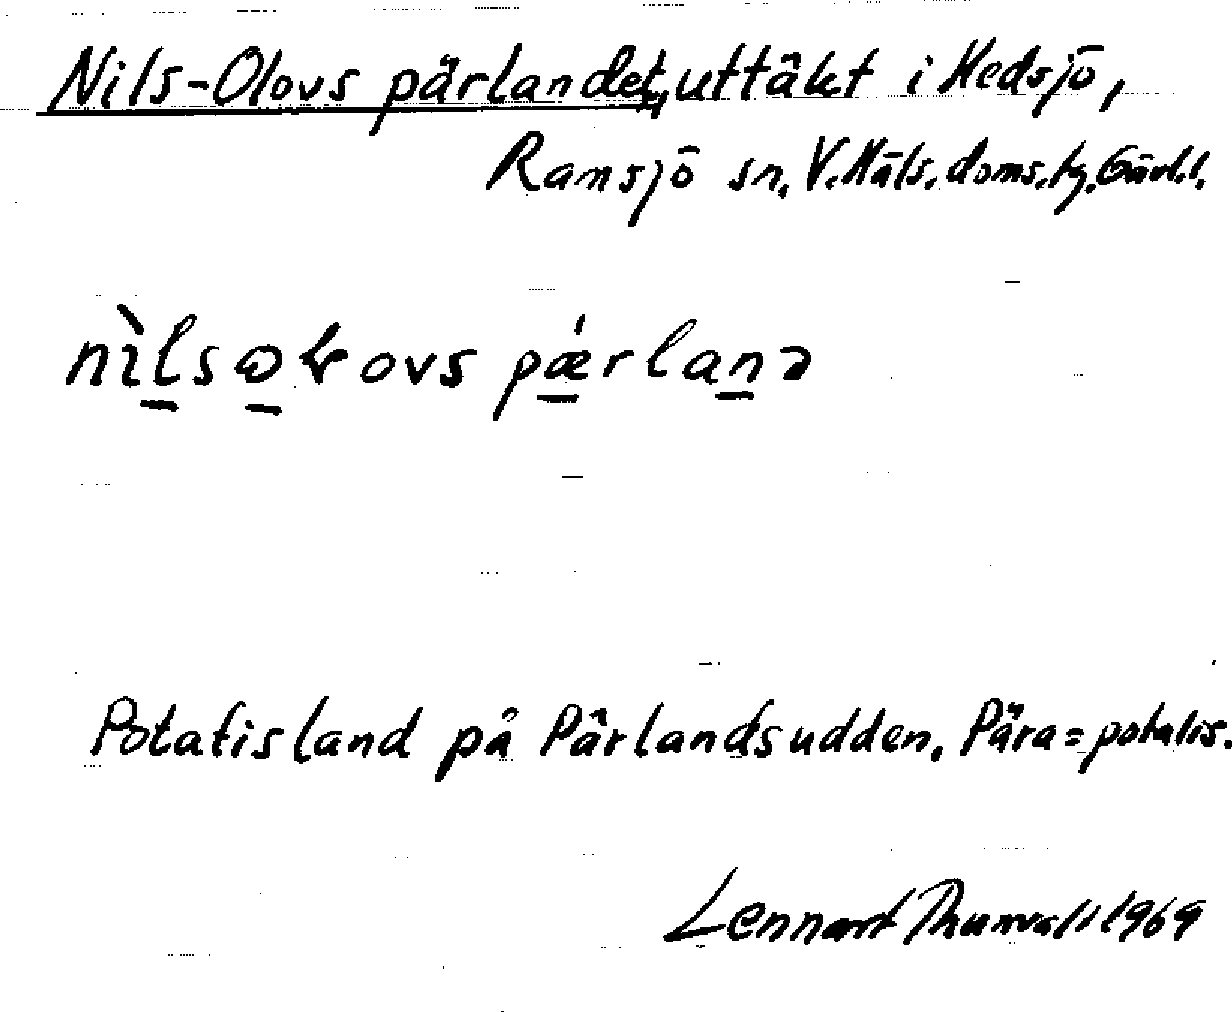 Nils-Olovs pärlandet, uttäkt i Hedsjö,
Ramsjö sn, V. Häls. doms.tg. Gävl.l.
nìlsɷɽovs pǽrlanə
Potatisland på Pärlandsudden. Pära = potatis.
Lennart Thunvall 1969